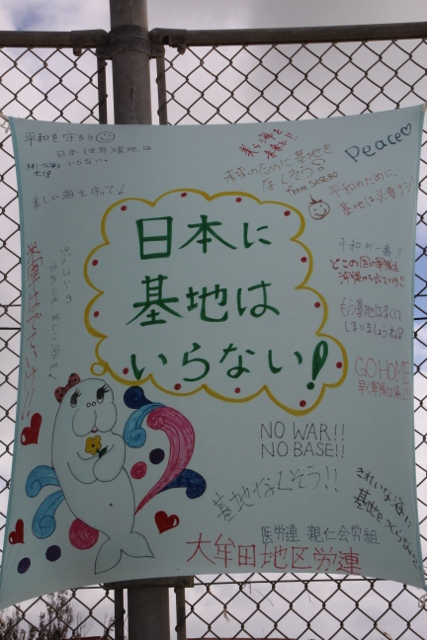 平和を守ろう
日本(世界)に基地は
いらない。
美しい海を守って!
美ら海を
未来に!
未来のために基地を
なくそう!
from SASEBO
Peace♡
平和のために
基地は必要ナシ!
日本に
基地は
いらない!
米軍はでていけ!!!
平和が一番!
どこの国の軍隊も
沖縄から出ていけ!!
もう基地はなくして
しまいましょうね
GO HOME
NO WAR!!
NO BASE!!
基地なくそう!!
きれいな海に
基地をつくらないで
医労連 親仁会労組
大牟田地区労連